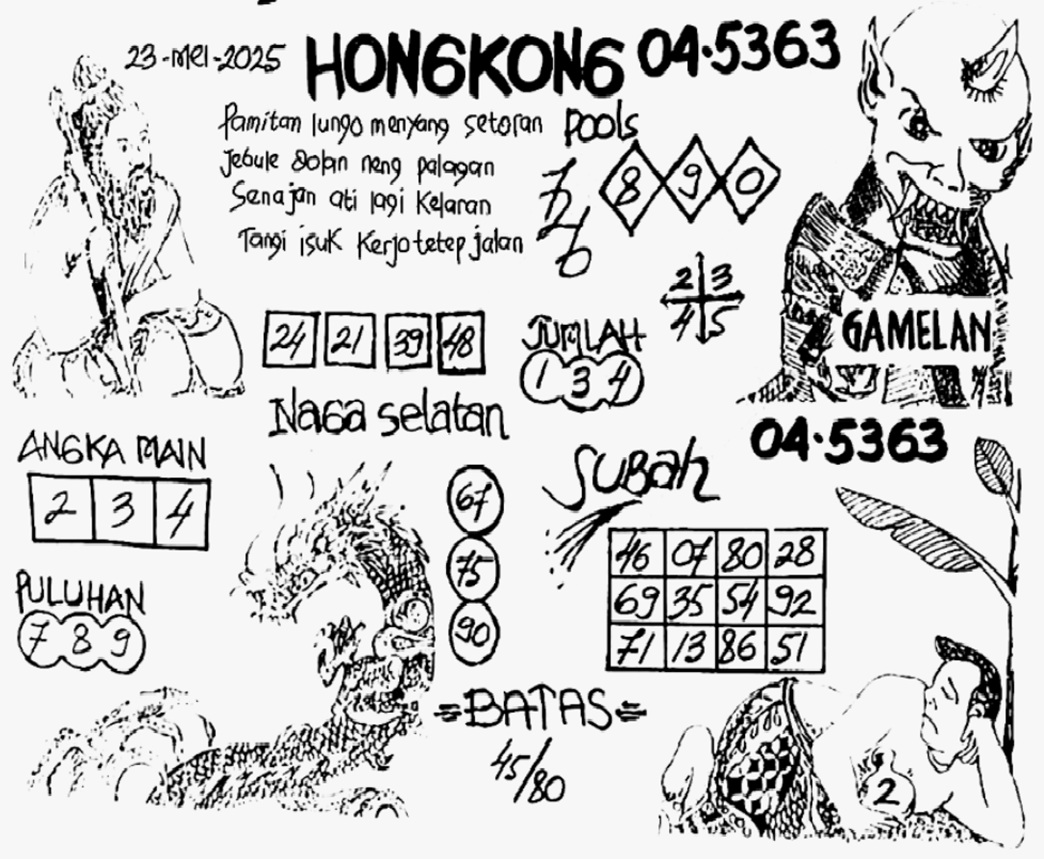 23-Mei-2025 HONGKONG 04.5363
Pamitan lungo menyang setoran Pools
Jebule Dolan neng palagan
Senajan ati lagi Kelaran
Tangi isuk Kerjo tetep jalan
7 8 9 0
6
2 3
4 5
GAMELAN
24 21 39 48
JUMLAH
1 3 4
Naga selatan
04.5363
ANGKA MAIN
2 3 4
SUBAH
67
75
90
46 07 80 28
69 35 54 92
71 13 86 51
PULUHAN
7 8 9
=BATAS=
45/80
2